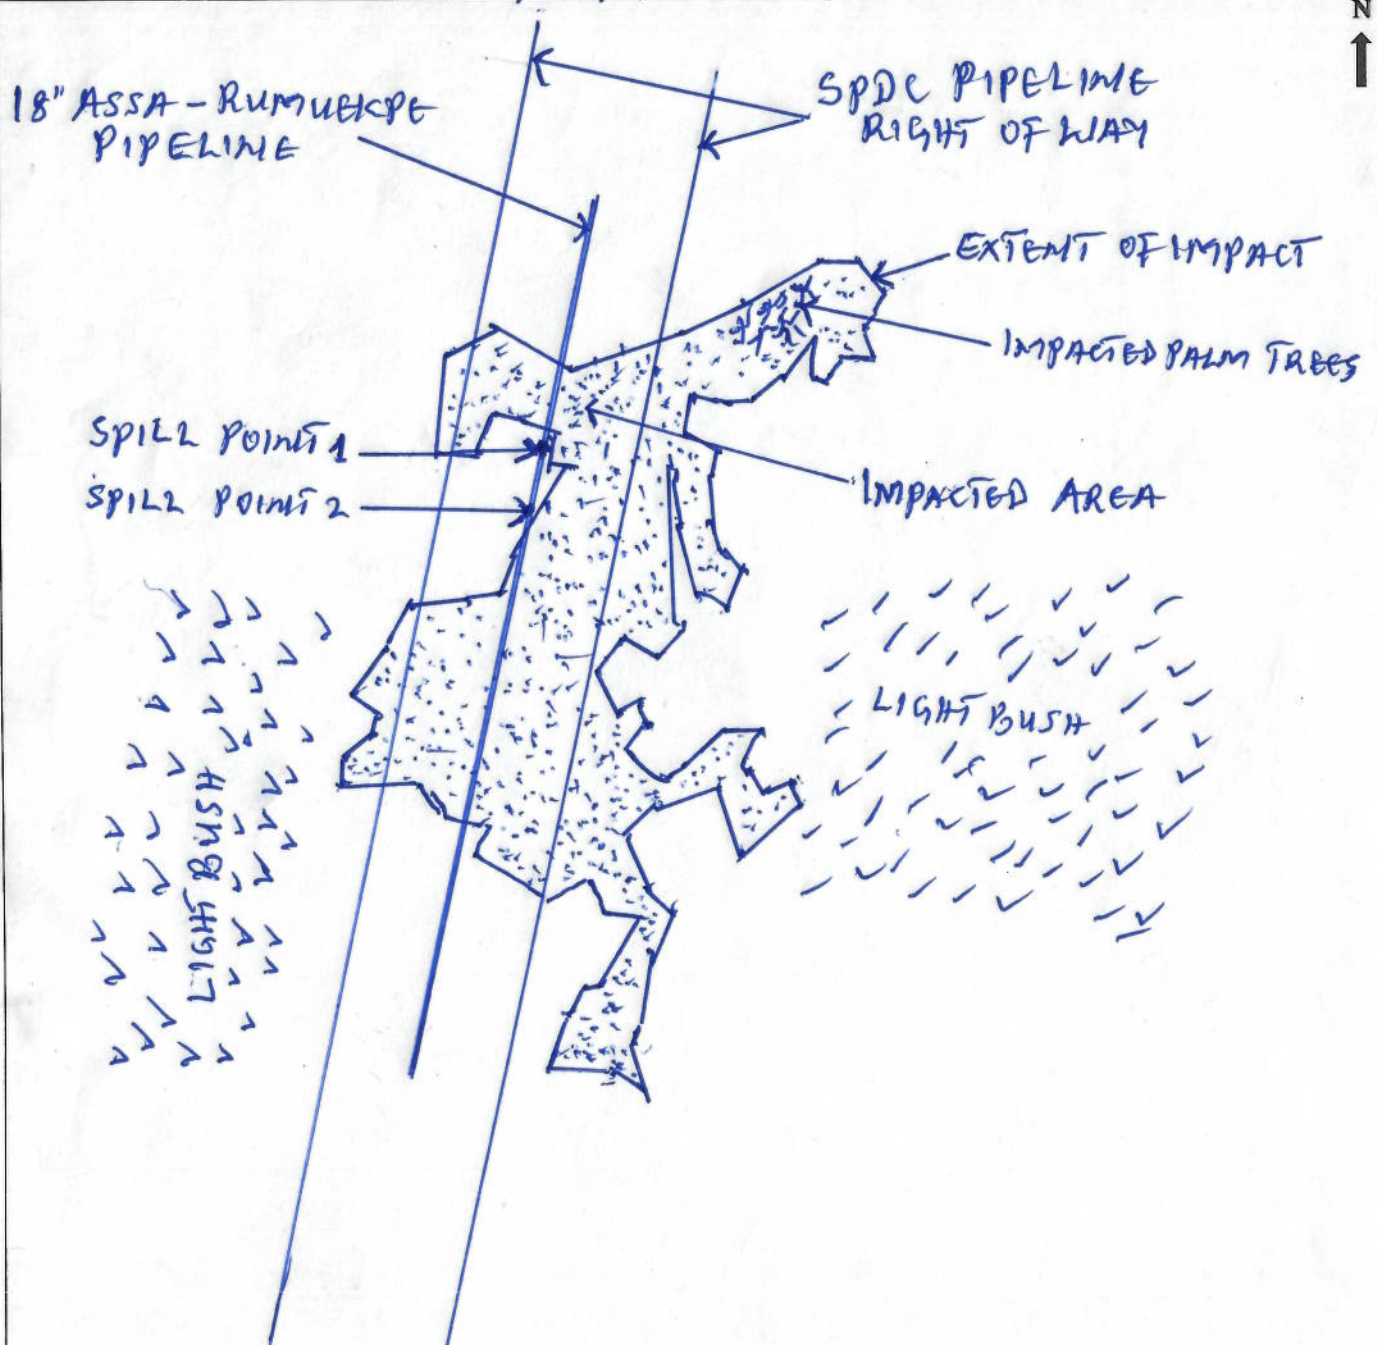 N
18" ASSA - RUMUEKPE
PIPELINE
SPDC PIPELINE
RIGHT OF WAY
EXTENT OF IMPACT
IMPACTED PALM TREES
SPILL POINT 1
SPILL POINT 2
IMPACTED AREA
LIGHT BUSH
LIGHT BUSH